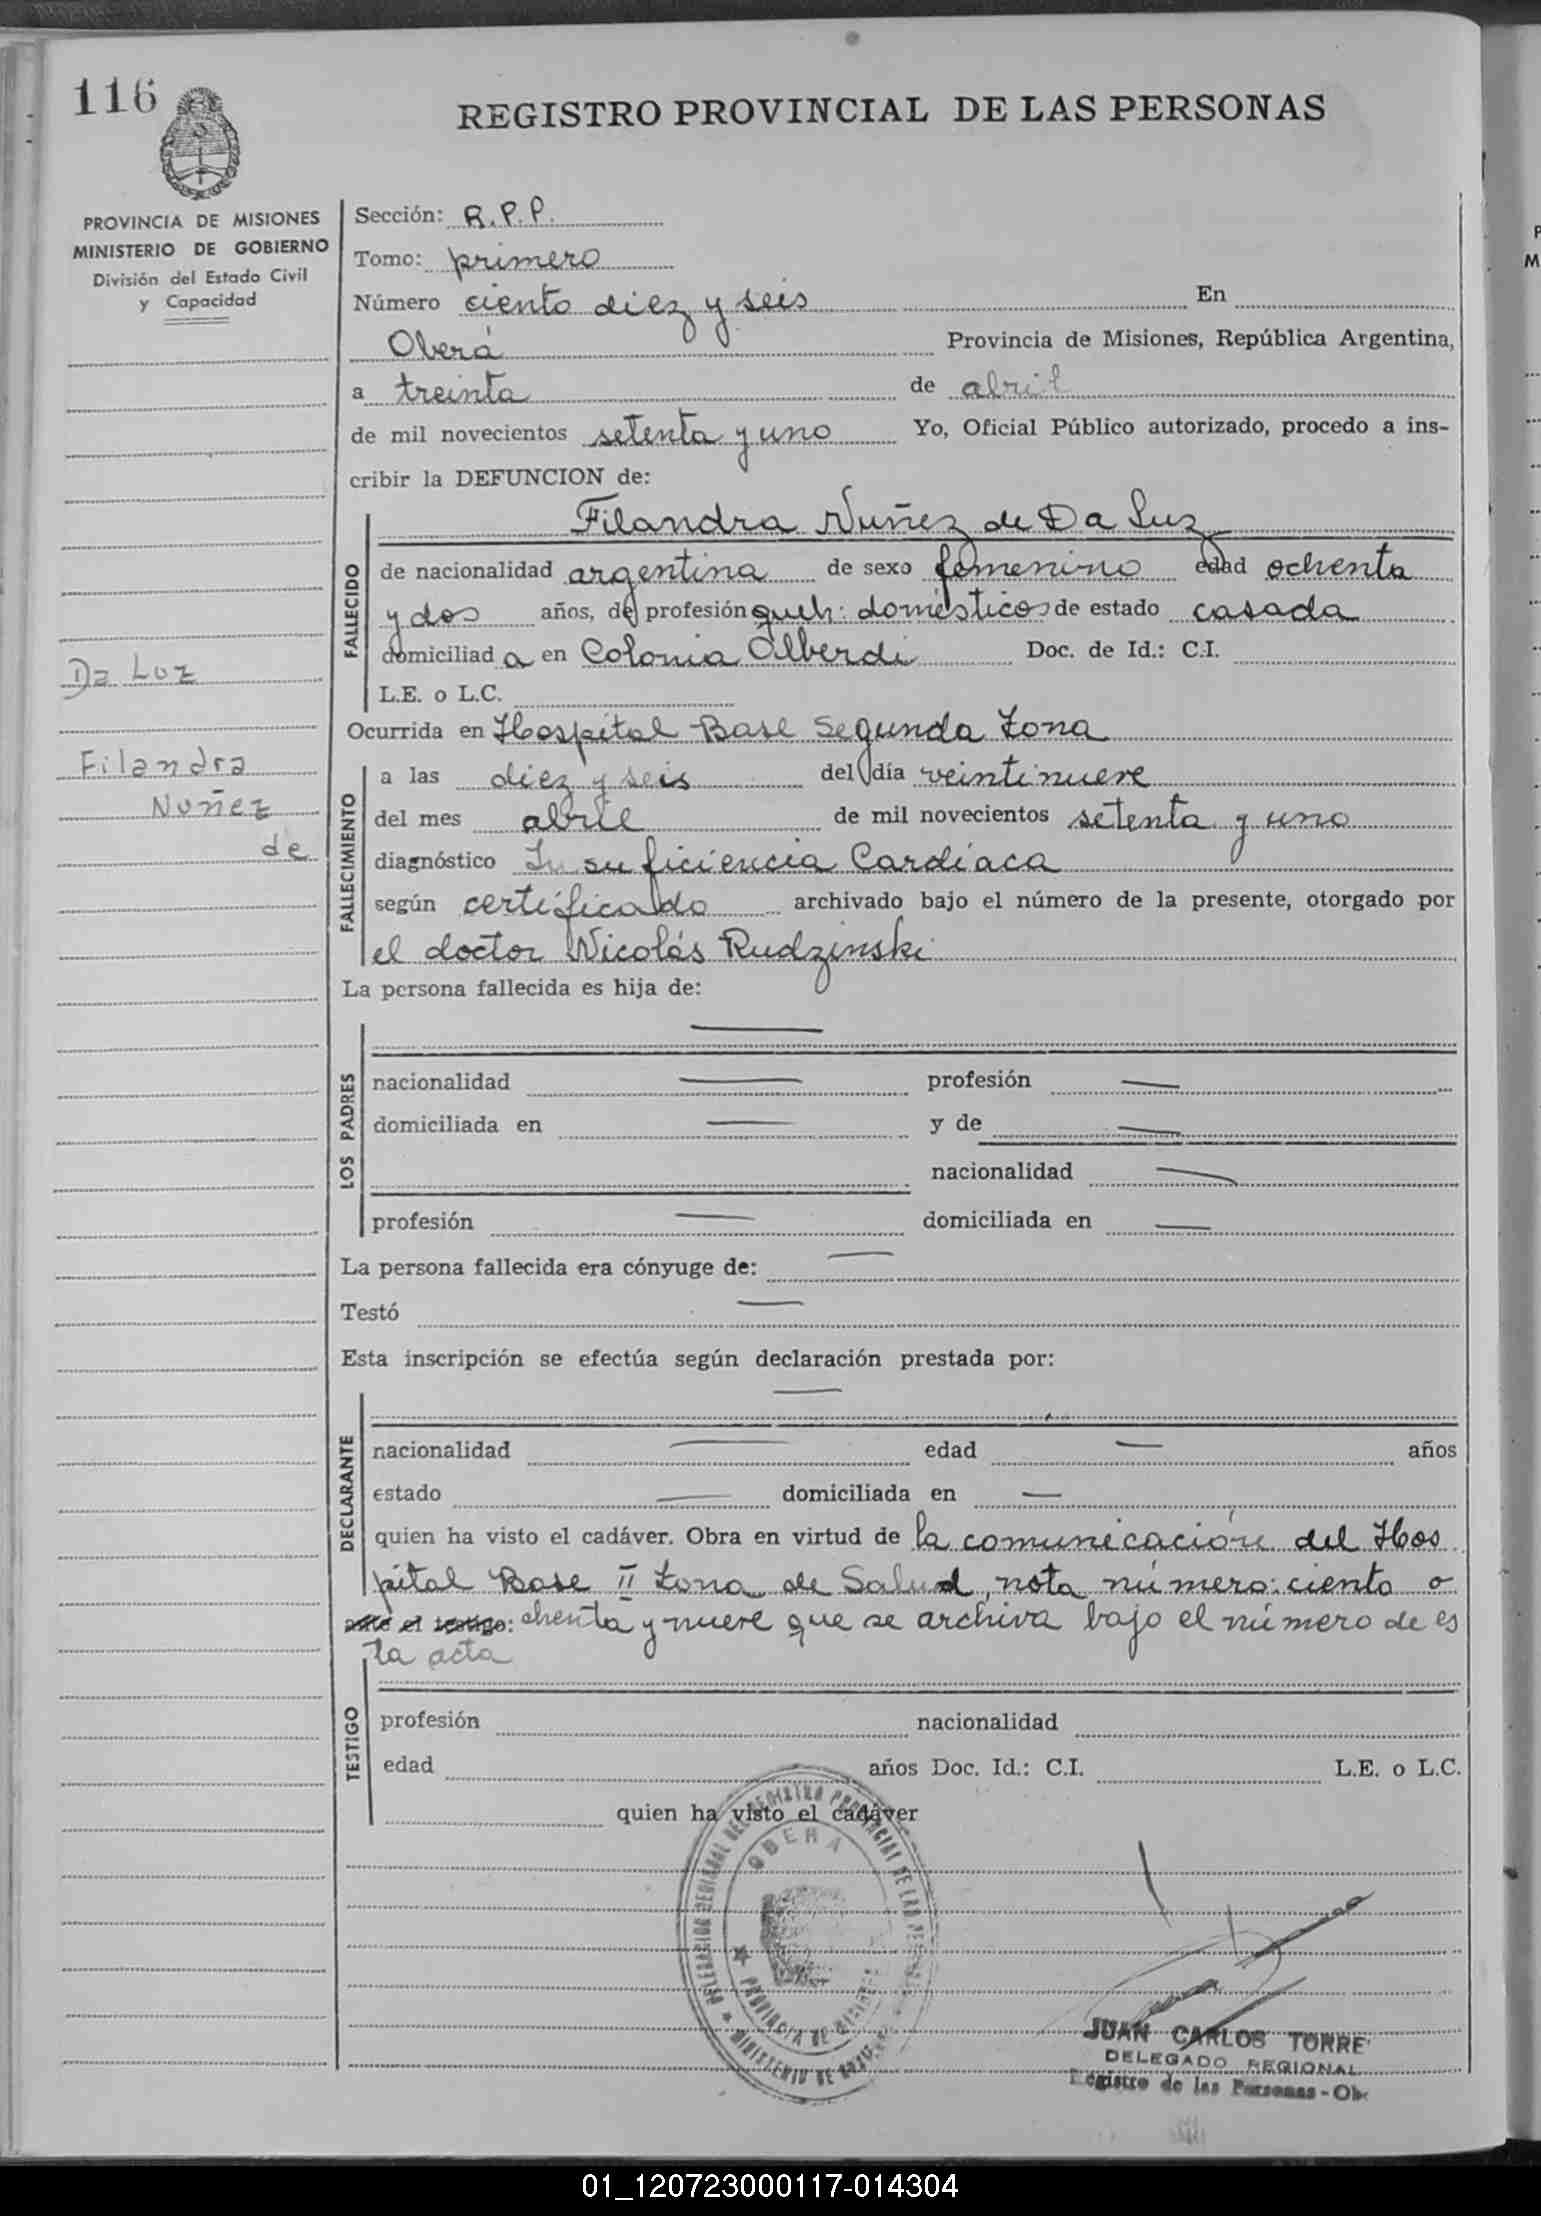 116
REGISTRO PROVINCIAL DE LAS PERSONAS
PROVINCIA DE MISIONES
MINISTERIO DE GOBIERNO
División del Estado Civil
y Capacidad
Da Luz
Filandra
Nuñez
de
Sección: R.P.P.
Tomo: primero
Número ciento diez y seis En
Oberá Provincia de Misiones, República Argentina,
a treinta de abril
de mil novecientos setenta y uno Yo, Oficial Público autorizado, procedo a ins-
cribir la DEFUNCION de:
FALLECIDO
Filandra Nuñez de Da Luz
de nacionalidad argentina de sexo femenino edad ochenta
y dos años, de profesión queh: domésticos de estado casada
domiciliad a en Colonia Alberdi Doc. de Id.: C.I.
L.E. o L.C.
Ocurrida en Hospital Base Segunda Zona
FALLECIMIENTO
a las diez y seis del día veintinueve
del mes abril de mil novecientos setenta y uno
diagnóstico Insuficiencia Cardíaca
según certificado archivado bajo el número de la presente, otorgado por
el doctor Nicolás Rudzinski
La persona fallecida es hija de:
LOS PADRES
nacionalidad — profesión —
domiciliada en — y de —
nacionalidad —
profesión — domiciliada en —
La persona fallecida era cónyuge de: —
Testó —
Esta inscripción se efectúa según declaración prestada por:
DECLARANTE
nacionalidad — edad — años
estado — domiciliada en —
quien ha visto el cadáver. Obra en virtud de la comunicación del Hos
pital Base II Zona de Salud, nota número: ciento o
ante el testigo: chenta y nueve que se archiva bajo el número de es
ta acta
TESTIGO
profesión nacionalidad
edad años Doc. Id.: C.I. L.E. o L.C.
quien ha visto el cadáver
DELEGACION REGIONAL DEL REGISTRO PROVINCIAL DE LAS
OBERA
PROVINCIA DE MISIONES
MINISTERIO DE
JUAN CARLOS TORRE
DELEGADO REGIONAL
Registro de las Personas - Ob
01_120723000117-014304